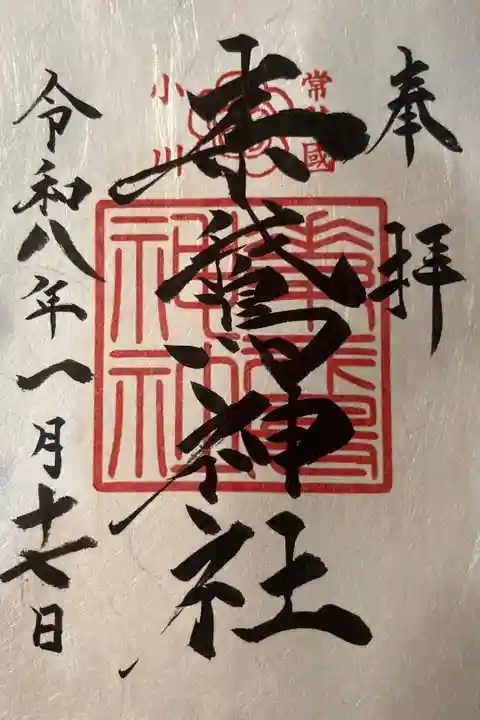 奉拝
常陸國
小川
素鵞神社
素鵞
神社
令和八年一月十七日